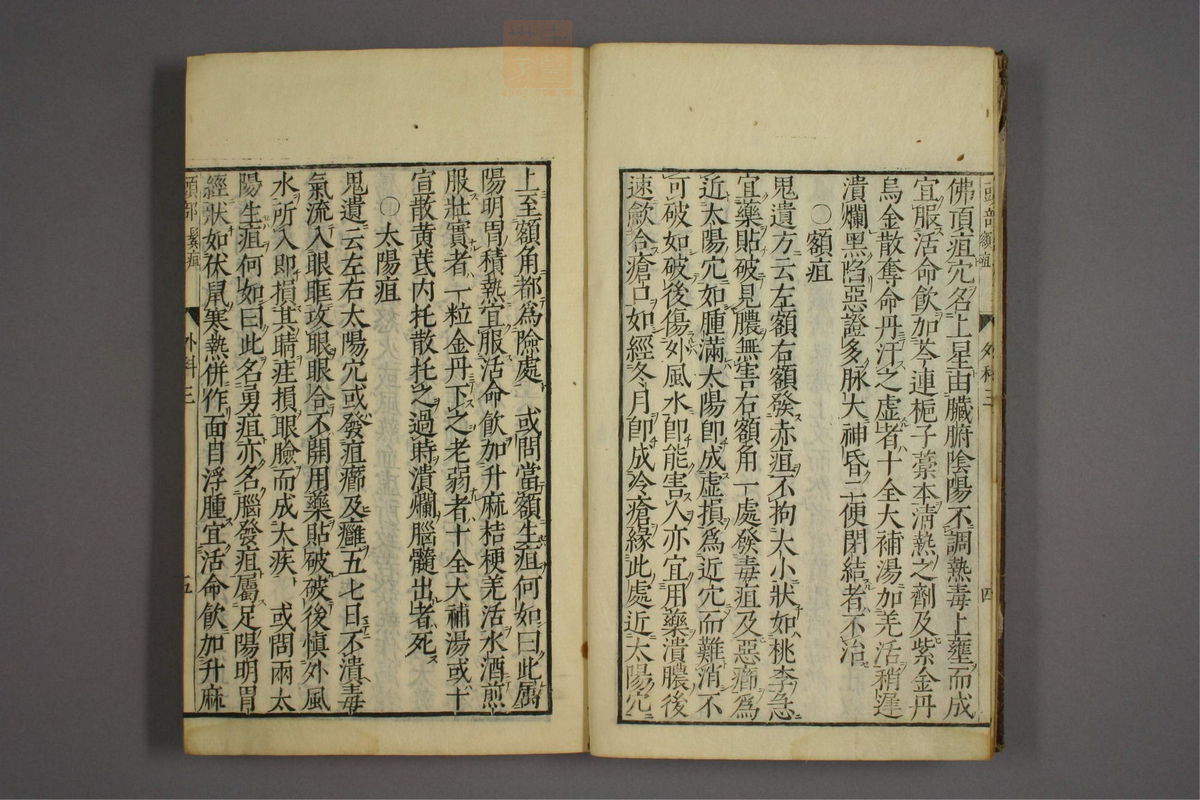 頭部額疽 外科三 四
佛頂疽穴名上星由臟腑陰陽不調熱毒上壅而成
宜服活命飲加芩連梔子藁本清熱之劑及紫金丹
烏金散奪命丹汗之虛者十全大補湯加羌活稍遲
潰爛黑陷惡證多脉大神昏二便閉結者不治
〇額疽
鬼遺方云左額右額發赤疽不拘大小狀如桃李急
宜藥貼破見膿無害右額角一處發毒疽及惡癤為
近太陽穴如腫滿太陽卽成虛損爲近穴而難消不
可破如破後傷外風水卽能害人亦宜用藥潰膿後
速歛合瘡口如經冬月卽成冷瘡緣此處近太陽穴
上至額角都爲險處 或問當額生疽何如曰此屬
陽明胃積熱宜服活命飲加升麻桔梗羌活水酒煎
服壯實者一粒金丹下之老弱者十全大補湯或十
宣散黄芪内托散托之過時潰爛腦髓出者死
〇太陽疽
鬼遺云左右太陽穴或發疽癤及癰五七日不潰毒
氣流入眼眶攻眼眼合不開用藥貼破破後慎外風
水所入即損其睛疰損眼瞼而成大疾 或問兩太
陽生疽何如曰此名勇疽亦名腦發疽屬足陽明胃
經狀如伏鼠寒熱併作面目浮腫宜活命飲加升麻
頭部 鬢疽 外科三 五